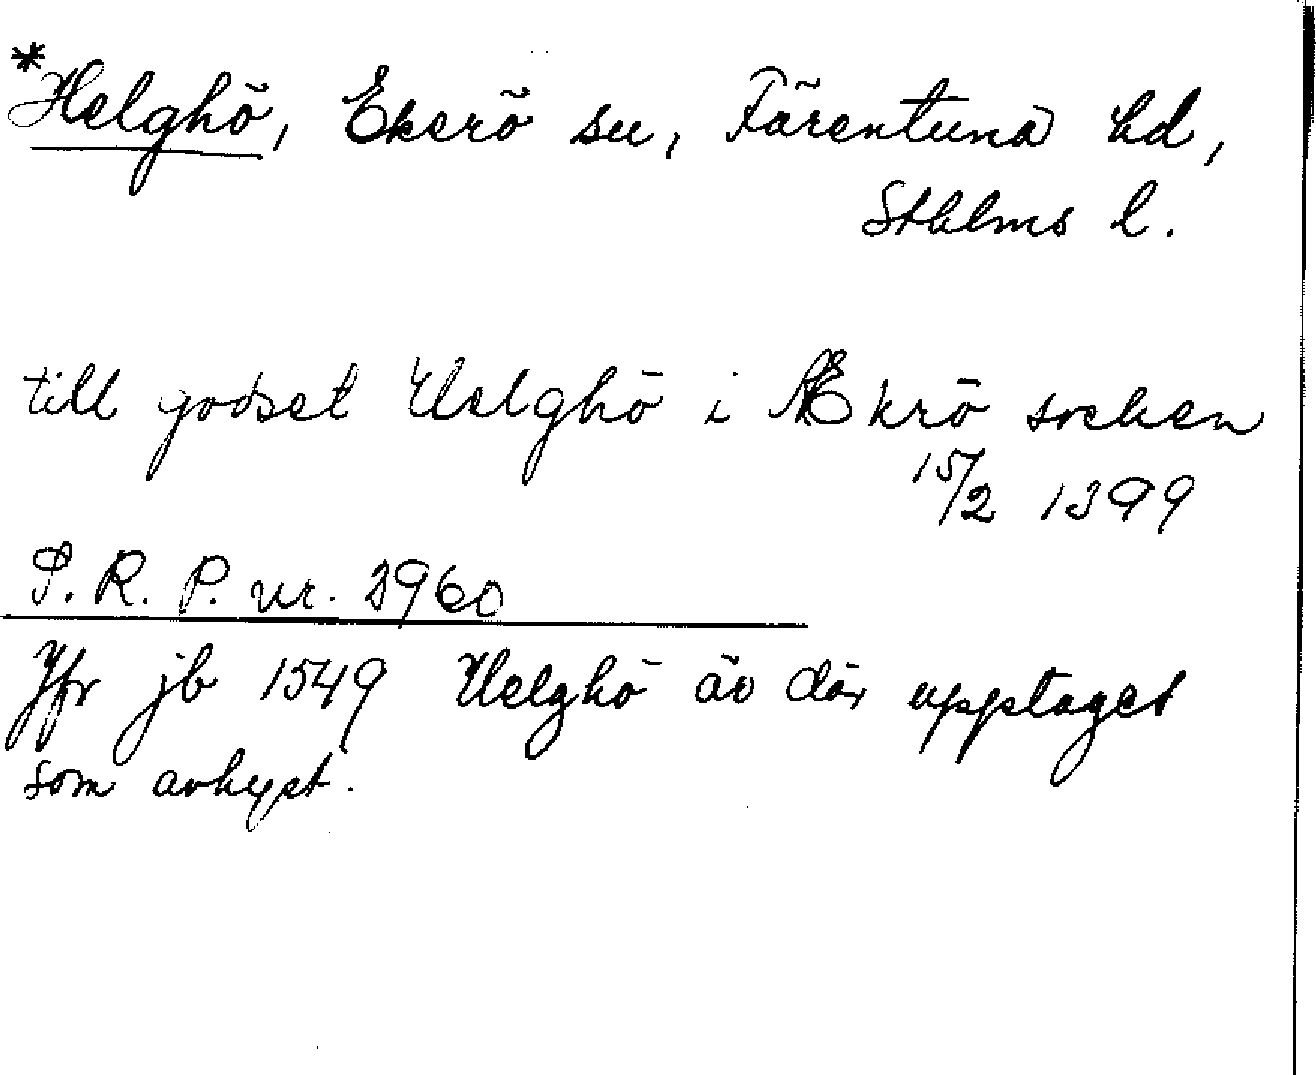 *Helghö, Ekerö sn, Färentuna hd,
Sthlms l.
till godset Helghö i Ækrö socken
15/2 1399
S. R. P. nr. 2960
Jfr jb 1549 Helghö är där upptaget
som avhyst.